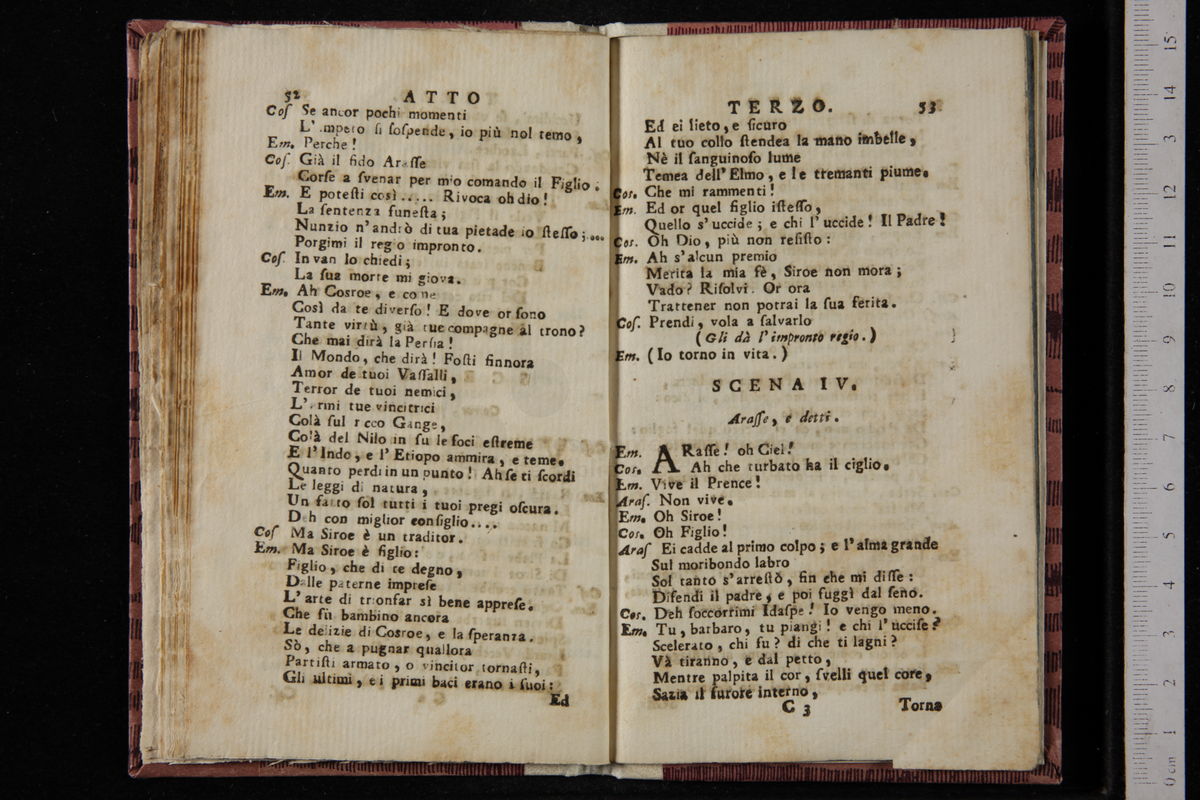 52 ATTO
Cos Se ancor pochi momenti
L'.mpeto si sospende, io più nol temo,
Em. Perche!
Cos. Già il fido Arasse
Corse a svenar per mio comando il Figlio.
Em. E potesti così..... Rivoca oh dio!
La sentenza funesta;
Nunzio n'andrò di tua pietade io stesso;....
Porgimi il regio impronto.
Cos. In van lo chiedi;
La sua morte mi giova.
Em. Ah Cosroe, e come
Così da te diverso! E dove or sono
Tante virtù, già tue compagne al trono?
Che mai dirà la Persia!
Il Mondo, che dirà! Fosti finnora
Amor de tuoi Vassalli,
Terror de tuoi nemici,
L'.rmi tue vincitrici
Colà sul ricco Gange,
Colà del Nilo in su le foci estreme
E l'Indo, e l'Etiopo ammira, e teme.
Quanto perdi in un punto! Ah se ti scordi
Le leggi di natura,
Un fatto sol tutti i tuoi pregi oscura.
Deh con miglior consiglio....
Cos Ma Siroe è un traditor.
Em. Ma Siroe è figlio:
Figlio, che di te degno,
Dalle paterne imprese
L'arte di trionfar sì bene apprese.
Che fù bambino ancora
Le delizie di Cosroe, e la speranza.
Sò, che a pugnar quallora
Partisti armato, o vincitor tornasti,
Gli ultimi, e i primi baci erano i suoi:
Ed
TERZO. 53
Ed ei lieto, e sicuro
Al tuo collo stendea la mano imbelle,
Nè il sanguinoso lume
Temea dell'Elmo, e le tremanti piume.
Cos. Che mi rammenti!
Em. Ed or quel figlio istesso,
Quello s'uccide; e chi l'uccide! Il Padre!
Cos. Oh Dio, più non resisto:
Em. Ah s'alcun premio
Merita la mia fè, Siroe non mora;
Vado? Risolvi. Or ora
Trattener non potrai la sua ferita.
Cos. Prendi, vola a salvarlo
(Gli dà l'impronto regio.)
Em. (Io torno in vita.)
SCENA IV.
Arasse, e detti.
Em. ARasse! oh Ciel!
Cos. Ah che turbato ha il ciglio.
Em. Vive il Prence!
Aras. Non vive.
Em. Oh Siroe!
Cos. Oh Figlio!
Aras Ei cadde al primo colpo; e l'alma grande
Sul moribondo labro
Sol tanto s'arrestò, fin che mi disse:
Difendi il padre, e poi fuggì dal seno.
Cos. Deh soccorrimi Idaspe! Io vengo meno.
Em. Tu, barbaro, tu piangi! e chi l'uccise?
Scelerato, chi fu? di che ti lagni?
Và tiranno, e dal petto,
Mentre palpita il cor, svelli quel core,
Sazia il furore interno,
C 3 Torna
0 cm 1 2 3 4 5 6 7 8 9 10 11 12 13 14 15